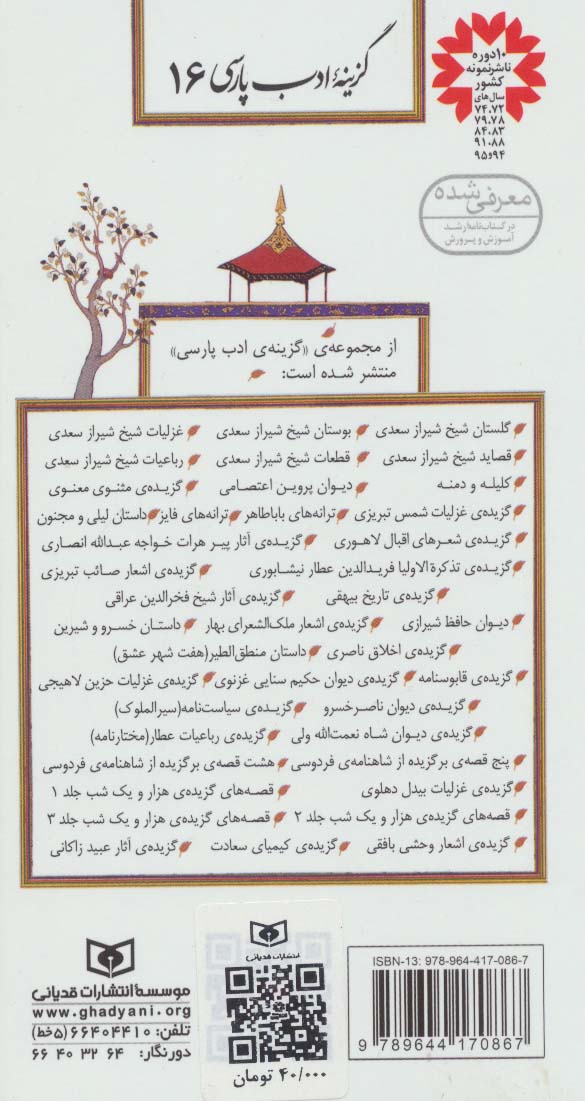 گزینهٔ ادب پارسی ۱۶
۱۰ دوره
ناشر نمونه
کشور
سال‌های
۷۴،۷۲
۷۹،۷۸
۸۴،۸۳
۹۱،۸۸
۹۴و۹۵
معرفی شده
در کتاب‌نامه رشد
آموزش و پرورش
از مجموعه‌ی «گزینه‌ی ادب پارسی»
منتشر شده است:
گلستان شیخ شیراز سعدی بوستان شیخ شیراز سعدی غزلیات شیخ شیراز سعدی
قصاید شیخ شیراز سعدی قطعات شیخ شیراز سعدی رباعیات شیخ شیراز سعدی
کلیله و دمنه دیوان پروین اعتصامی گزیده‌ی مثنوی معنوی
گزیده‌ی غزلیات شمس تبریزی ترانه‌های باباطاهر ترانه‌های فایز داستان لیلی و مجنون
گزیده‌ی شعرهای اقبال لاهوری گزیده‌ی آثار پیر هرات خواجه عبدالله انصاری
گزیده‌ی تذکرة الاولیا فریدالدین عطار نیشابوری گزیده‌ی اشعار صائب تبریزی
گزیده‌ی تاریخ بیهقی گزیده‌ی آثار شیخ فخرالدین عراقی
دیوان حافظ شیرازی گزیده‌ی اشعار ملک‌الشعرای بهار داستان خسرو و شیرین
گزیده‌ی اخلاق ناصری داستان منطق‌الطیر(هفت شهر عشق)
گزیده‌ی قابوسنامه گزیده‌ی دیوان حکیم سنایی غزنوی گزیده‌ی غزلیات حزین لاهیجی
گزیده‌ی دیوان ناصرخسرو گزیده‌ی سیاست‌نامه(سیرالملوک)
گزیده‌ی دیوان شاه نعمت‌الله ولی گزیده‌ی رباعیات عطار(مختارنامه)
پنج قصه‌ی برگزیده از شاهنامه‌ی فردوسی هشت قصه‌ی برگزیده از شاهنامه‌ی فردوسی
گزیده‌ی غزلیات بیدل دهلوی قصه‌های گزیده‌ی هزار و یک شب جلد ۱
قصه‌های گزیده‌ی هزار و یک شب جلد ۲ قصه‌های گزیده‌ی هزار و یک شب جلد ۳
گزیده‌ی اشعار وحشی بافقی گزیده‌ی کیمیای سعادت گزیده‌ی آثار عبید زاکانی
ISBN-13: 978-964-417-086-7
9 789644 170867
انتشارات قدیانی
۴۰/۰۰۰ تومان
موسسهٔ انتشارات قدیانی
www.ghadyani.org
تلفن: ۶۶۴۰۴۴۱۰ (۵خط)
دورنگار: ۶۶۴۰۳۲۶۴